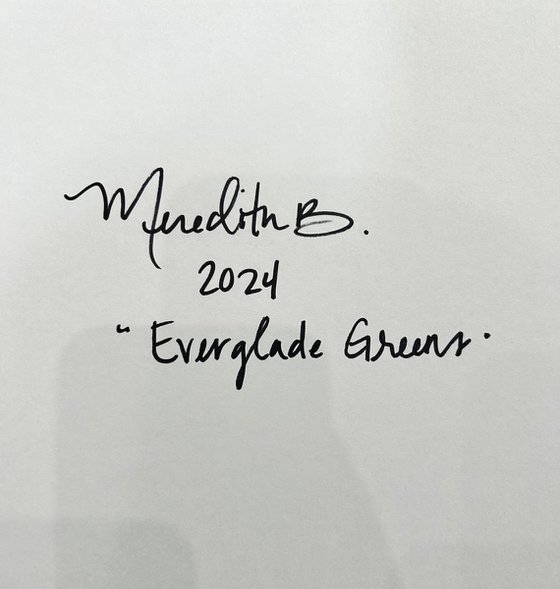 Meredith B.
2024
"Everglade Greens"